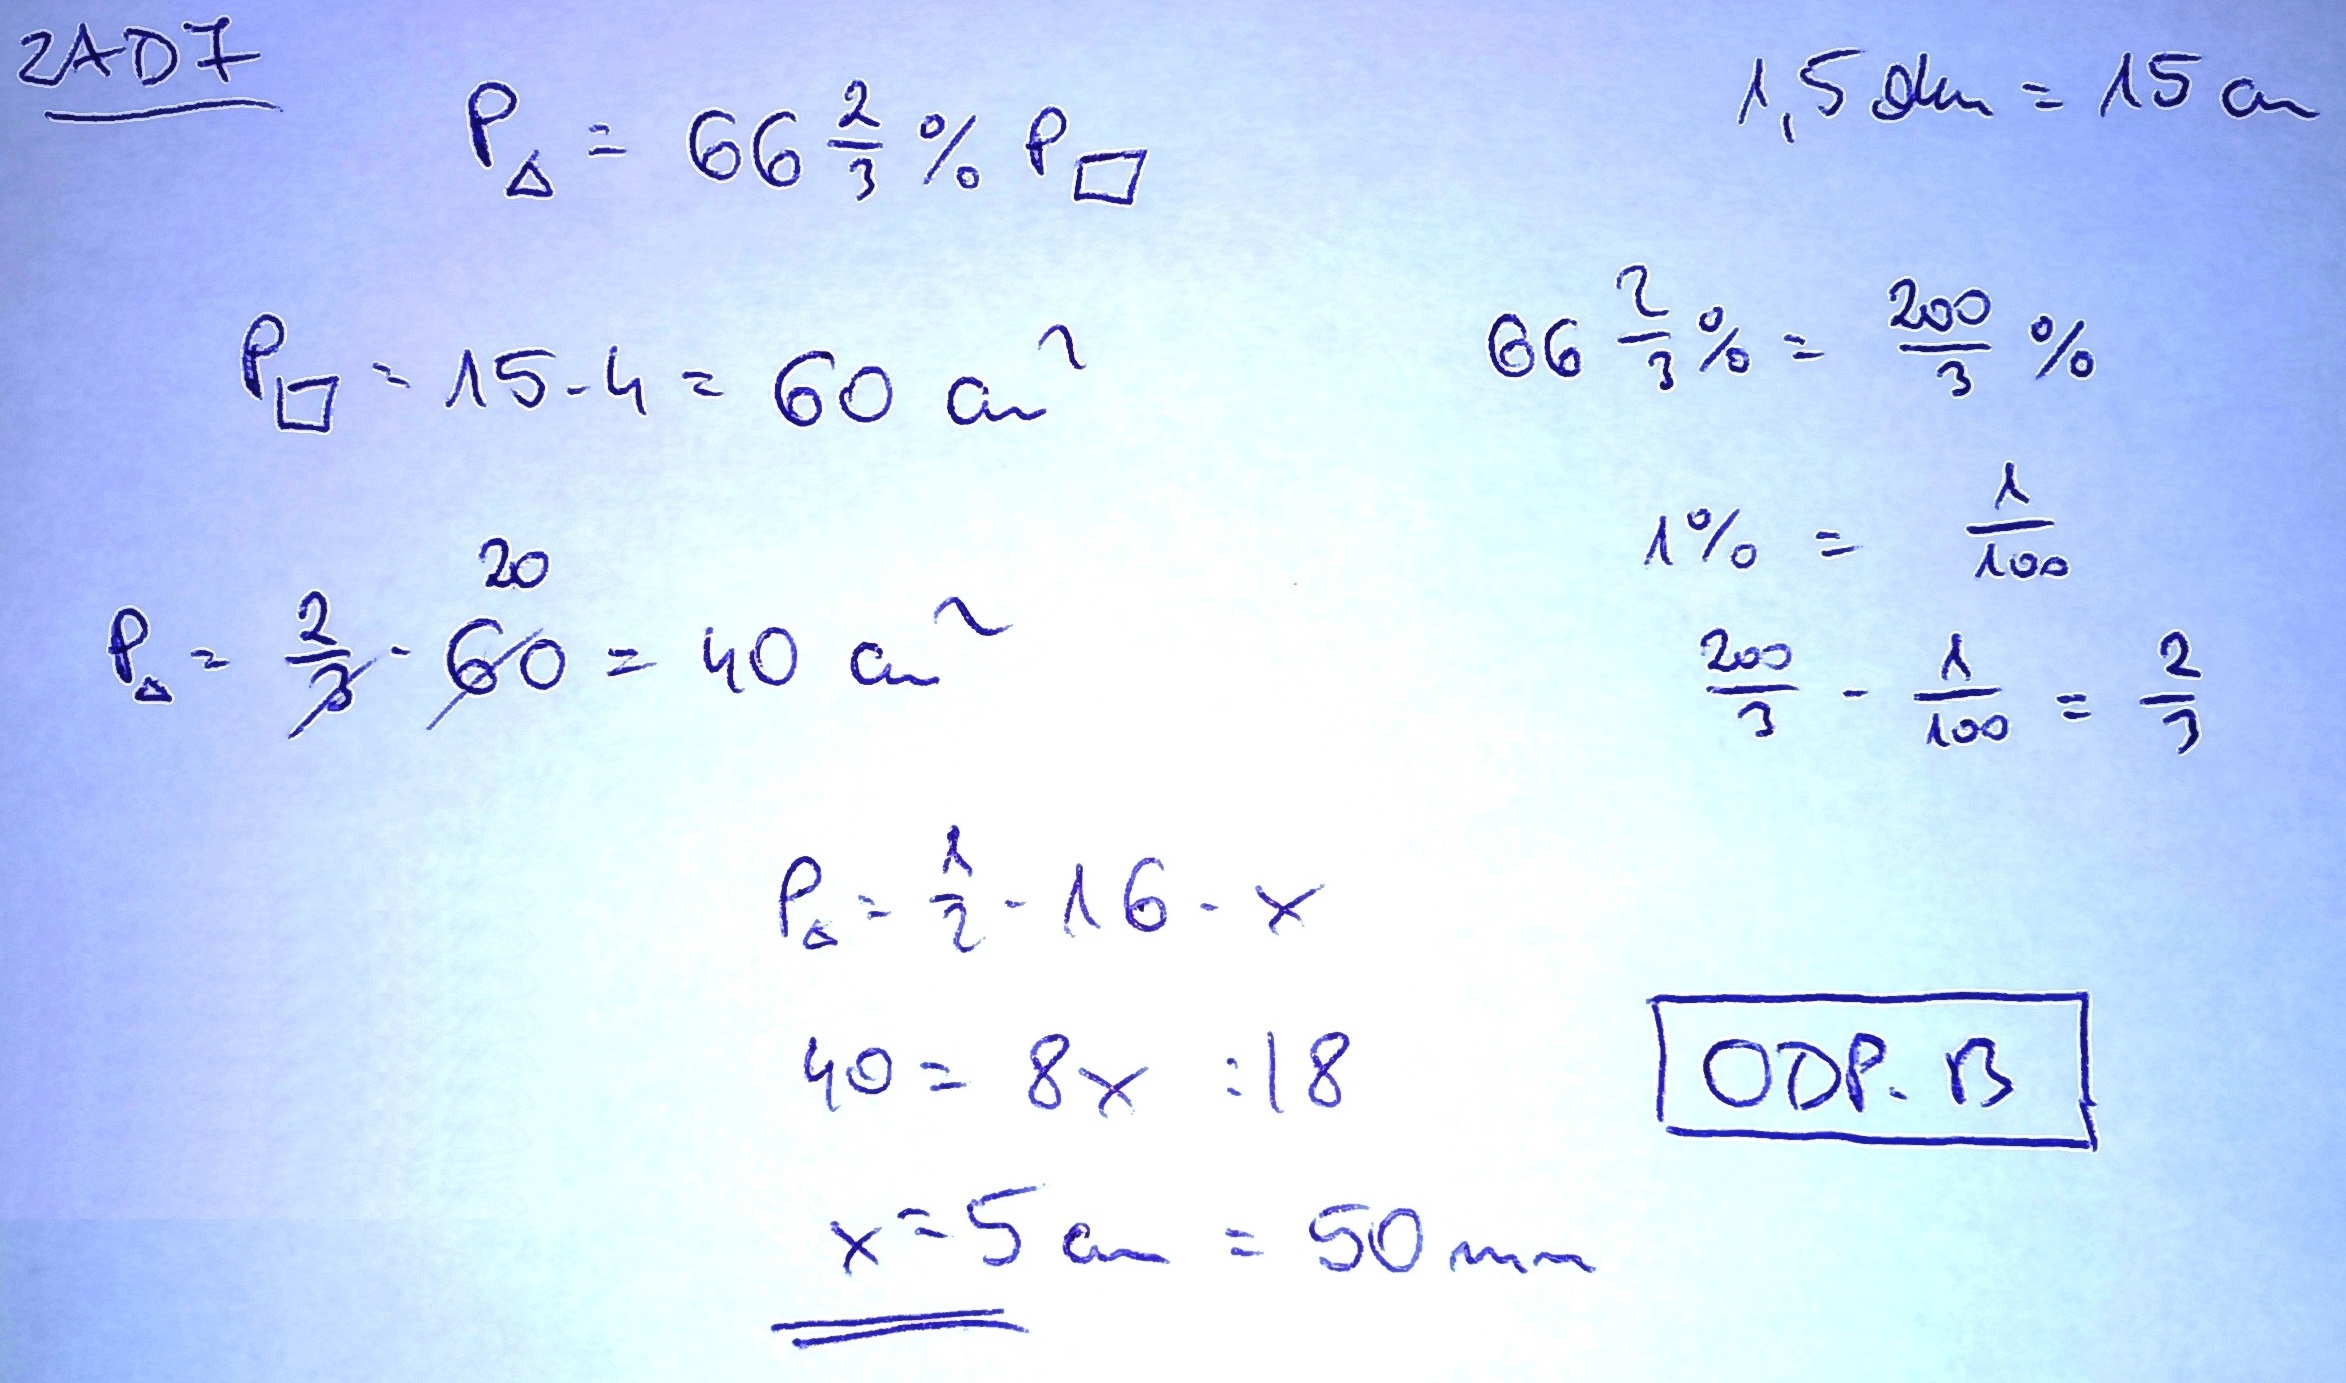 ZAD 7
P△ = 66 2/3 % P▱
1,5 dm = 15 cm
P▱ = 15 · 4 = 60 cm²
66 2/3 % = 200/3 %
1% = 1/100
20
P△ = 2/3 · 60 = 40 cm²
200/3 · 1/100 = 2/3
P△ = 1/2 · 16 · x
40 = 8x :|8
ODP. B
x = 5 cm = 50 mm